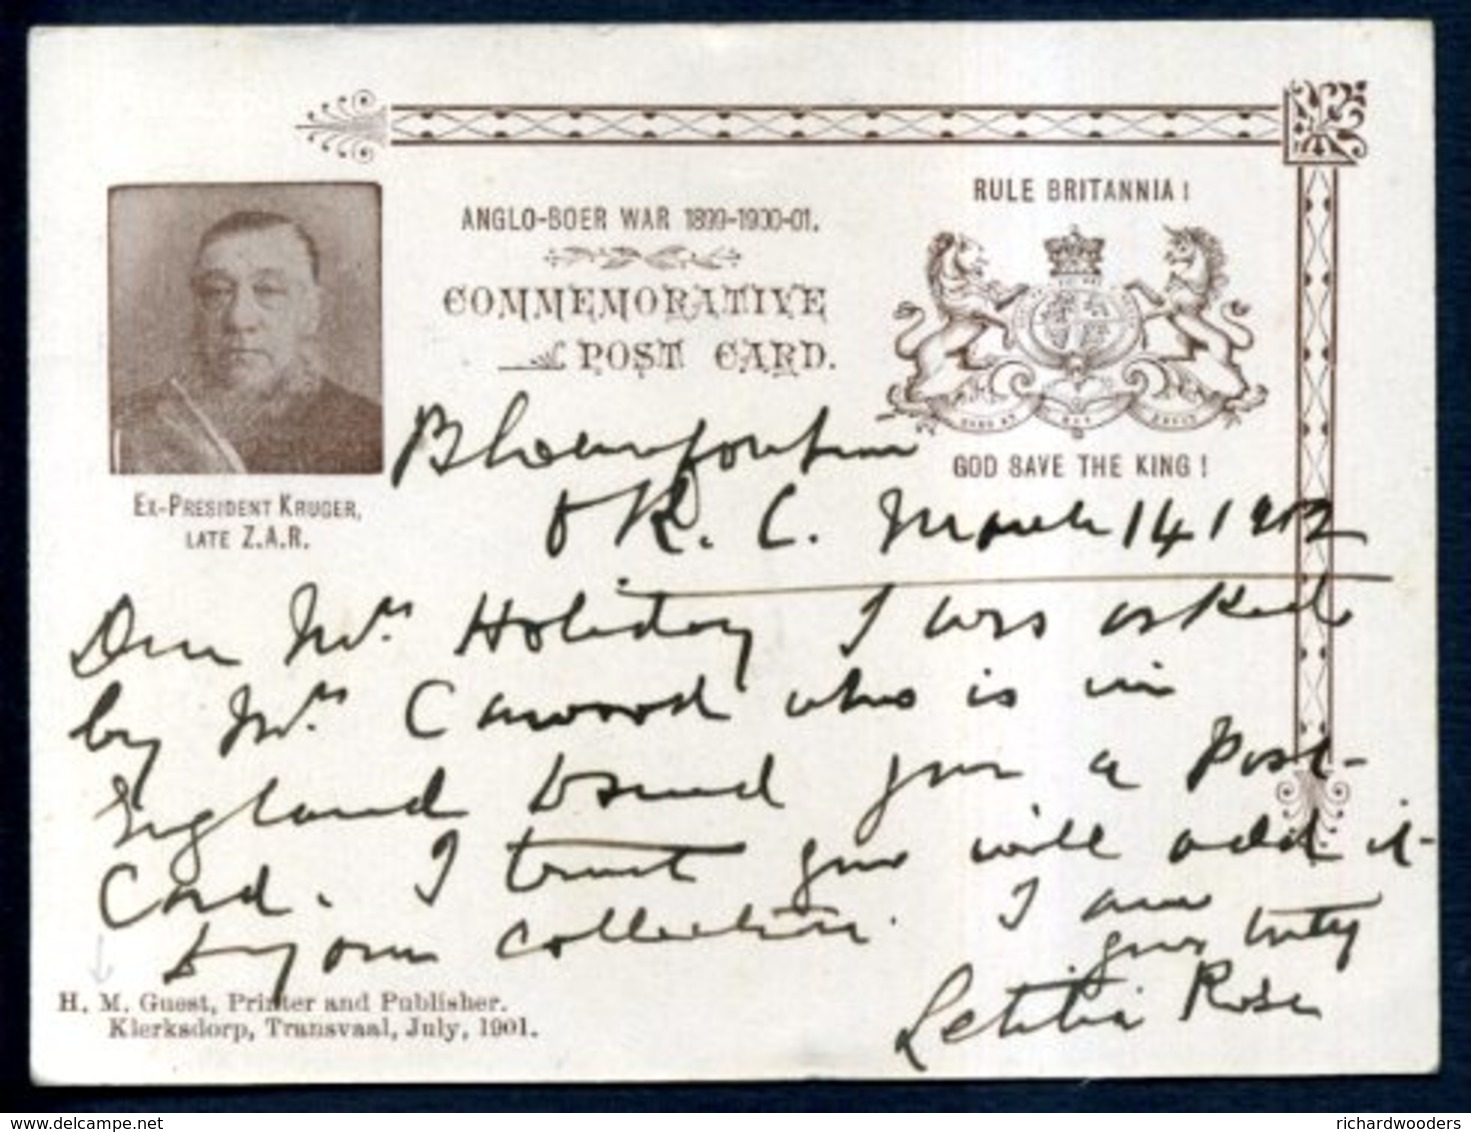 ANGLO-BOER WAR 1899-1900-01.
COMMEMORATIVE
POST CARD.
RULE BRITANNIA!
GOD SAVE THE KING!
EX-PRESIDENT KRUGER,
LATE Z.A.R.
Bloemfontein
O R. C. March 14 1902
Dear Mrs Holiday I was asked
by Mrs Cawood who is in
England to send you a Post-
Card. I trust you will add it
to your collection. I am
yours truly
Letitia Rose
H. M. Guest, Printer and Publisher.
Klerksdorp, Transvaal, July, 1901.
richardwooders